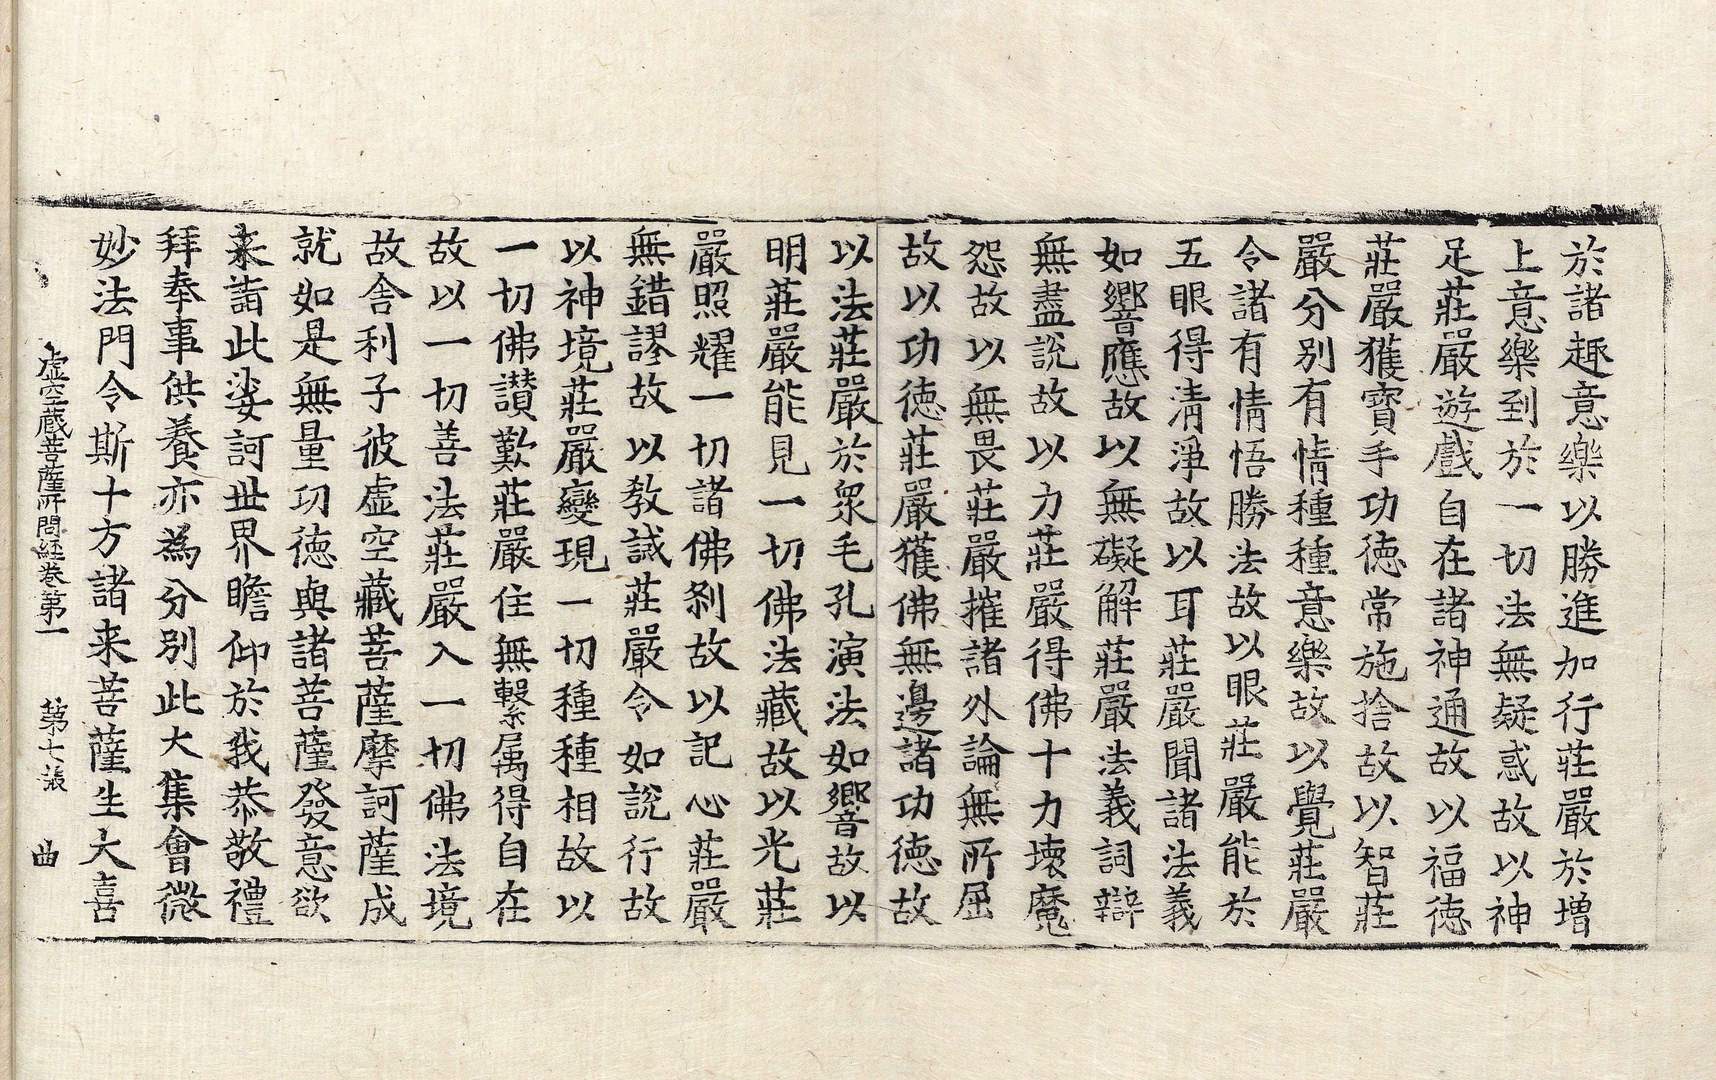 於諸趣意樂以勝進加行莊嚴於增
上意樂到於一切法無疑惑故以神
足莊嚴遊戲自在諸神通故以福德
莊嚴獲寶手功德常施捨故以智莊
嚴分別有情種種意樂故以覺莊嚴
令諸有情悟勝法故以眼莊嚴能於
五眼得清淨故以耳莊嚴聞諸法義
如響應故以無礙解莊嚴法義詞辯
無盡說故以力莊嚴得佛十力壞魔
怨故以無畏莊嚴摧諸外論無所屈
故以功德莊嚴獲佛無邊諸功德故
以法莊嚴於衆毛孔演法如響故以
明莊嚴能見一切佛法藏故以光莊
嚴照耀一切諸佛剎故以記心莊嚴
無錯謬故以教誡莊嚴令如說行故
以神境莊嚴變現一切種種相故以
一切佛讚歎莊嚴住無繫属得自在
故以一切善法莊嚴入一切佛法境
故舍利子彼虛空藏菩薩摩訶薩成
就如是無量功德與諸菩薩發意欲
来詣此娑訶世界瞻仰於我恭敬禮
拜奉事供養亦為分別此大集會微
妙法門令斯十方諸来菩薩生大喜
虛空藏菩薩所問經卷第一 第七張 曲